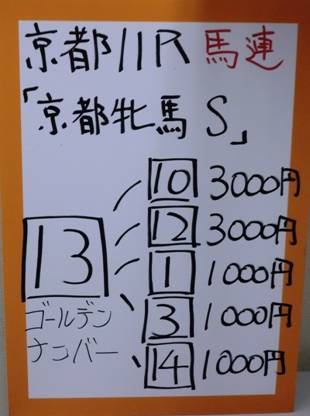 京都11R 馬連
「京都牝馬S」
13
ゴールデン
ナンバー
10 3000円
12 3000円
1 1000円
3 1000円
14 1000円